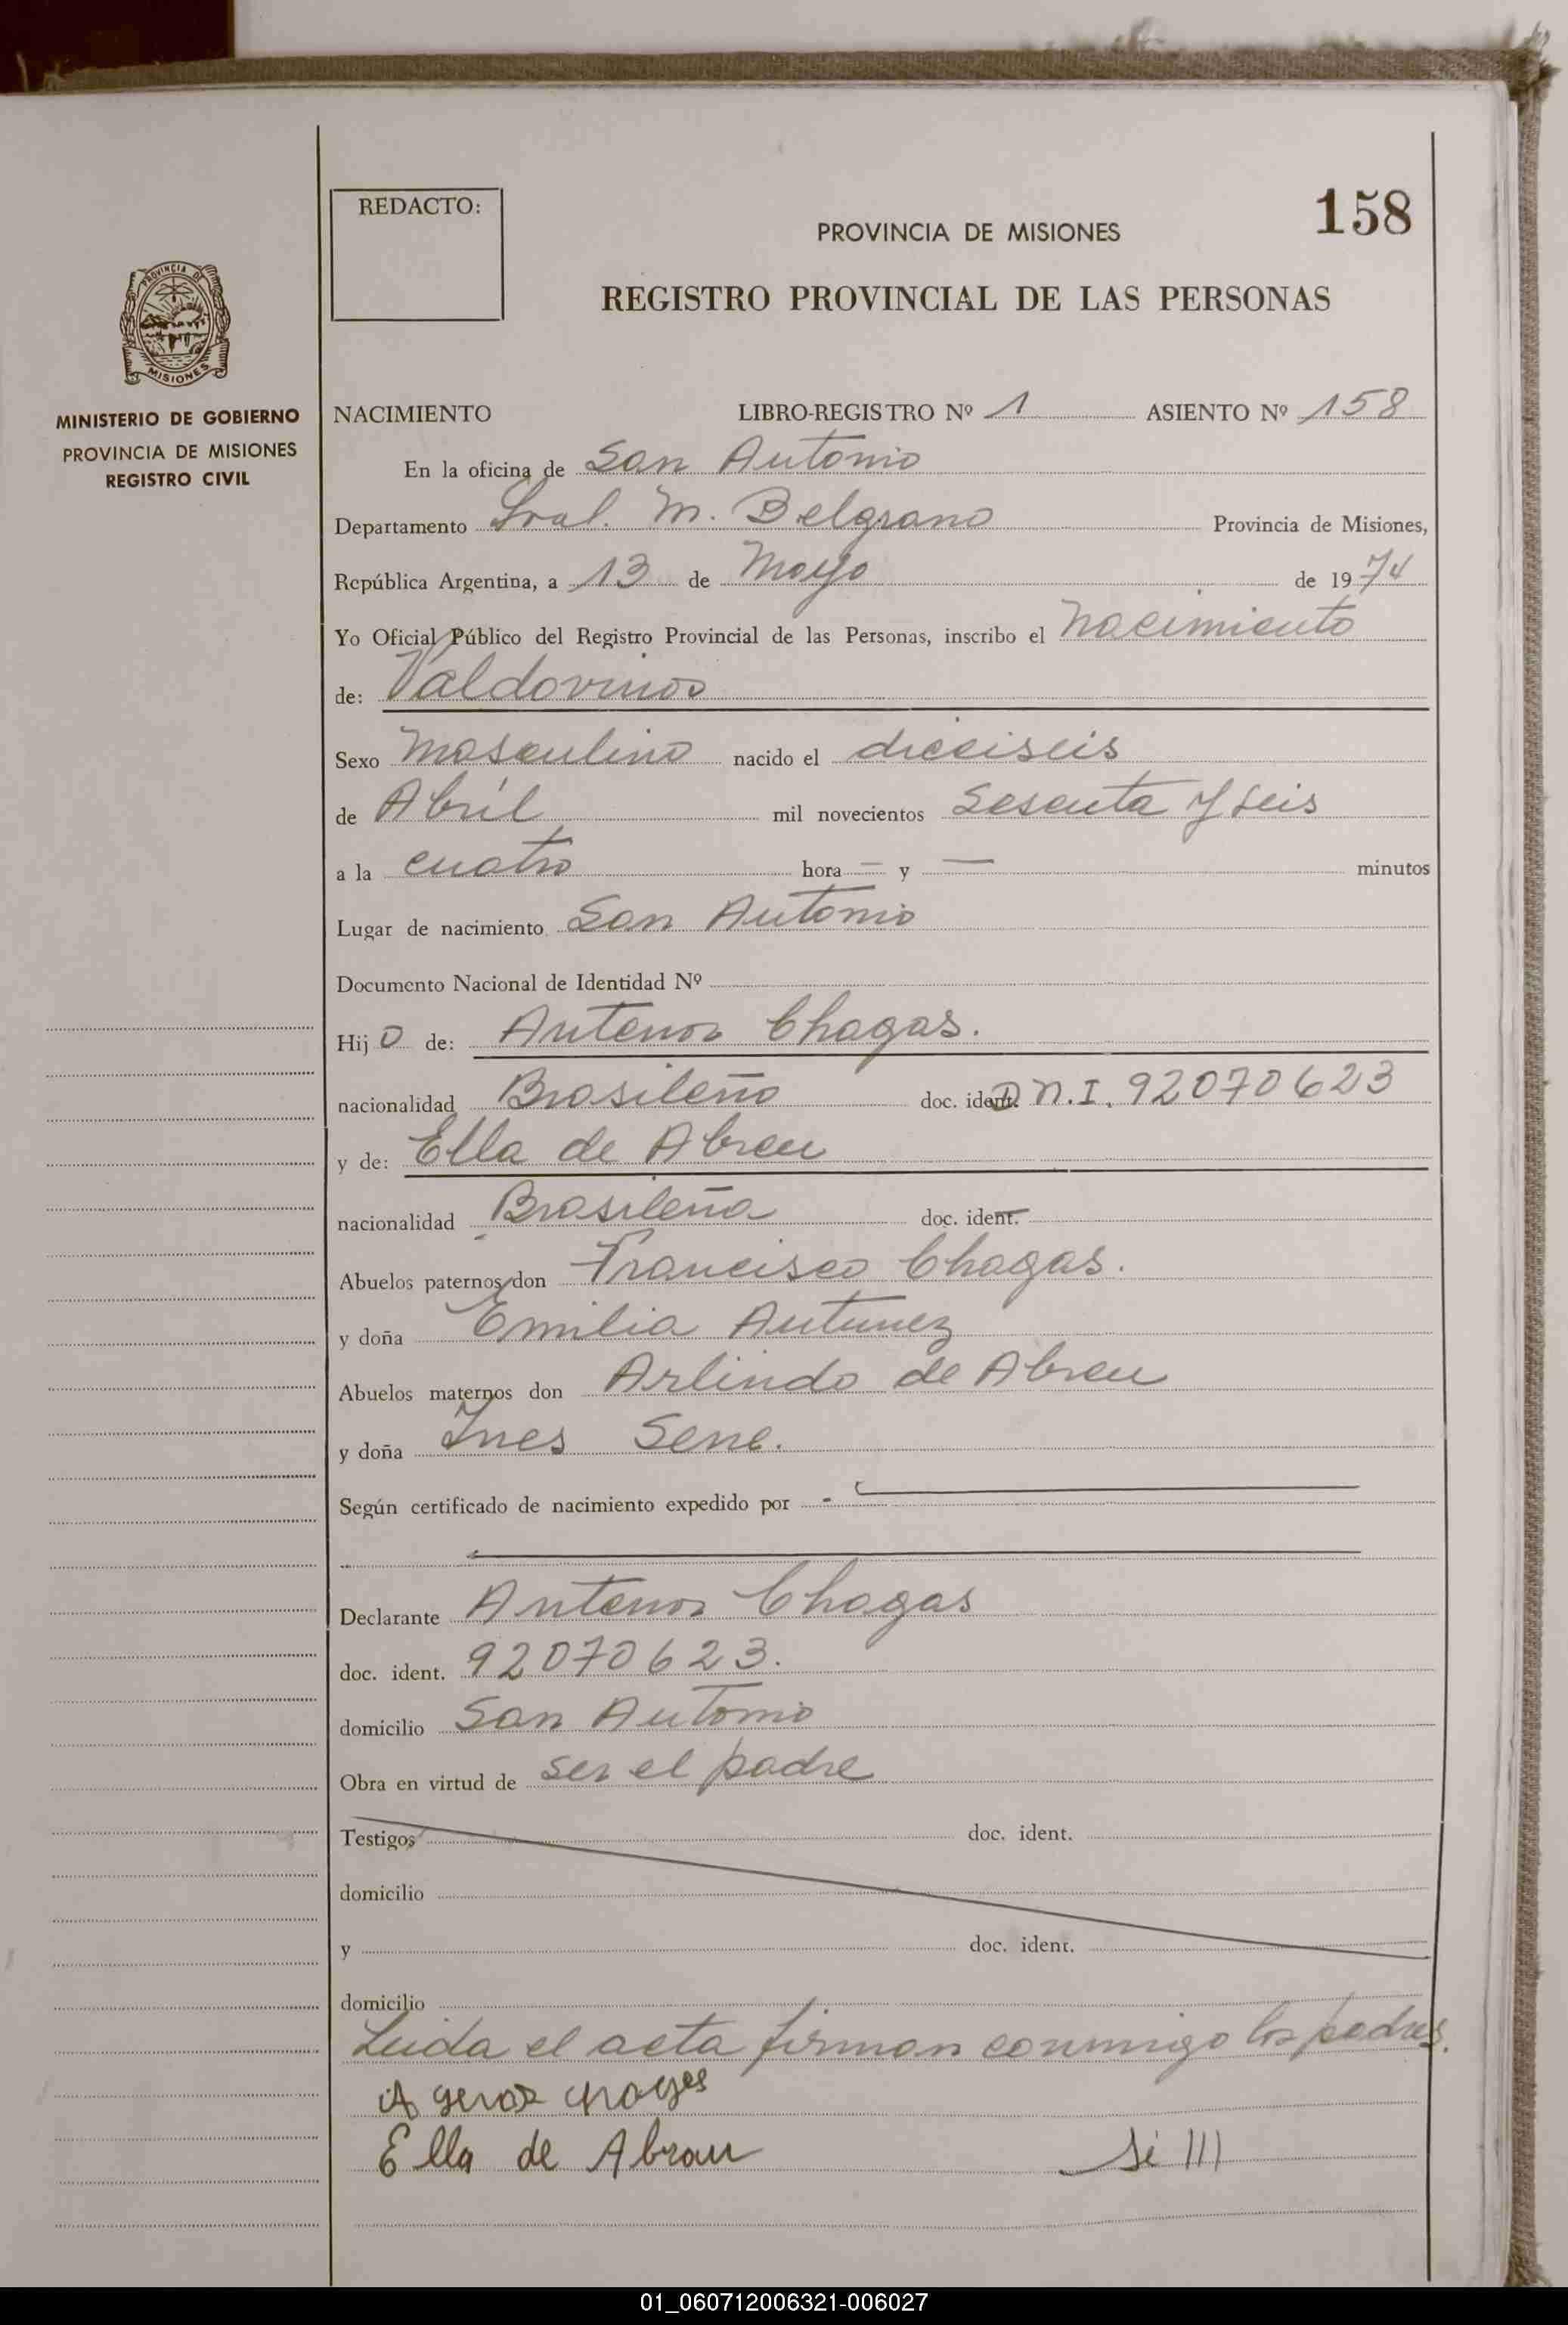 158
REDACTO:
PROVINCIA DE MISIONES
REGISTRO PROVINCIAL DE LAS PERSONAS
PROVINCIA DE
MISIONES
MINISTERIO DE GOBIERNO
PROVINCIA DE MISIONES
REGISTRO CIVIL
NACIMIENTO LIBRO-REGISTRO Nº 1 ASIENTO Nº 158
En la oficina de San Antonio
Departamento Gral. M. Belgrano Provincia de Misiones,
República Argentina, a 13 de Mayo de 1974
Yo Oficial Público del Registro Provincial de las Personas, inscribo el nacimiento
de: Valdovinos
Sexo Masculino nacido el dieciseis
de Abril mil novecientos Sesenta y seis
a la cuatro hora — y — minutos
Lugar de nacimiento San Antonio
Documento Nacional de Identidad Nº
Hijo de: Antenor Chagas.
nacionalidad Brasileño doc. ident. D.N.I. 92070623
y de: Ella de Abreu
nacionalidad Brasileña doc. ident.
Abuelos paternos don Francisco Chagas.
y doña Emilia Antunez
Abuelos maternos don Arlindo de Abreu
y doña Ines Sene.
Según certificado de nacimiento expedido por
Declarante Antenor Chagas
doc. ident. 92070623.
domicilio San Antonio
Obra en virtud de ser el padre
Testigos doc. ident.
domicilio
y doc. ident.
domicilio
Leida el acta firman conmigo los padres.
Ella de Abrau
01_060712006321-006027